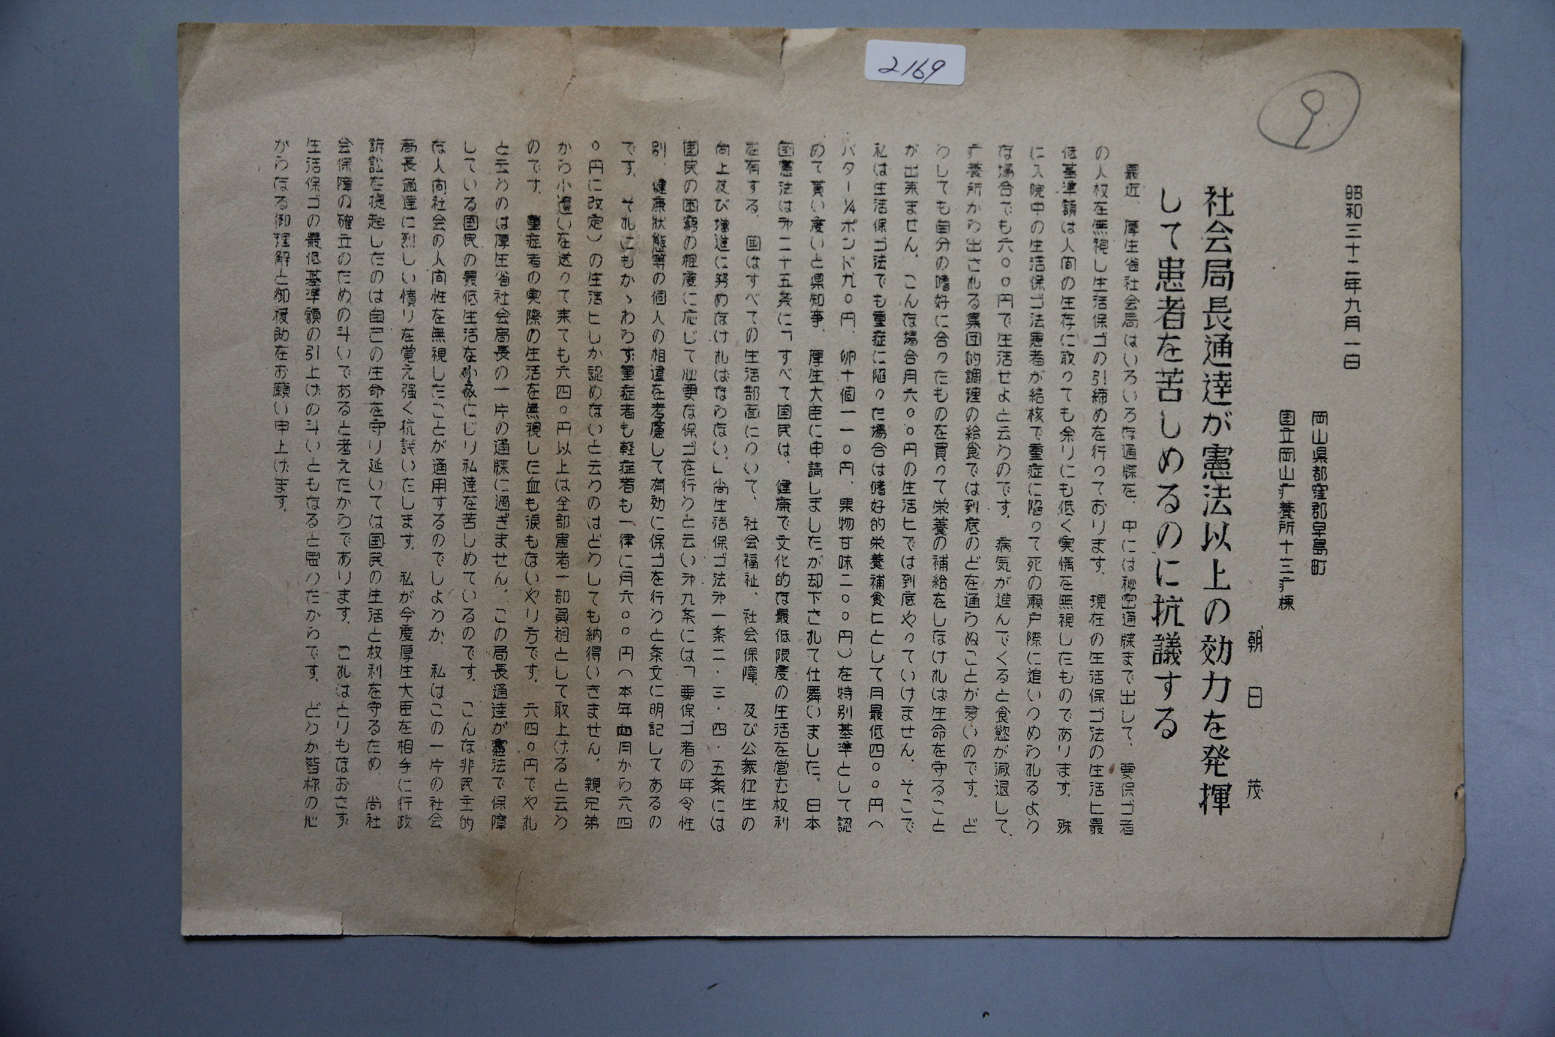 2169
9
昭和三十二年九月一日
岡山県都窪郡早島町
国立岡山疗養所十三疗棟
朝日　茂
社会局長通達が憲法以上の効力を発揮
して患者を苦しめるのに抗議する
最近、厚生省社会局はいろいろな通牒を、中には秘密通牒まで出して、要保ゴ者
の人权を無視し生活保ゴの引締めを行っております。現在の生活保ゴ法の生活ヒ最
低基準額は人间の生存に取っても余りにも低く実情を無視したものであります。殊
に入院中の生活保ゴ法患者が結核で重症に陥って死の瀬戸際に追いつめられるよう
な場合でも六〇〇円で生活せよと云うのです。病気が進んでくると食慾が減退して、
疗養所から出される集団的調理の給食では到底のどを通らぬことが多いのです。ど
うしても自分の嗜好に合ったものを買って栄養の補給をしなければ生命を守ること
が出来ません。こんな場合月六〇〇円の生活ヒでは到底やっていけません。そこで
私は生活保ゴ法でも重症に陥った場合は嗜好的栄養補食ヒとして月最低四〇〇円（
バター¼ポンド九〇円、卵十個一一〇円、果物甘味二〇〇円）を特別基準として認
めて貰い度いと県知事、厚生大臣に申請しましたが却下されて仕舞いました。日本
国憲法は第二十五条に「すべて国民は、健康で文化的な最低限度の生活を営む权利
を有する。国はすべての生活部面について、社会福祉、社会保障、及び公衆衛生の
向上及び増進に努めなければならない」尚生活保ゴ法第一条二・三・四・五条には
国民の困窮の程度に応じて必要な保ゴを行うと云い第九条には「要保ゴ者の年令性
別、健康状態等の個人の相違を考慮して有効に保ゴを行うと条文に明記してあるの
です。それにもかゝわらず重症者も軽症者も一律に月六〇〇円（本年四月から六四
〇円に改定）の生活ヒしか認めないと云うのはどうしても納得いきません。親兄弟
から小遣いを送って来ても六四〇円以上は全部患者一部負担として取上げると云う
のです。重症者の実際の生活を無視した血も涙もないやり方です。六四〇円でやれ
と云うのは厚生省社会局長の一片の通牒に過ぎません。この局長通達が憲法で保障
している国民の最低生活をふみにじり私達を苦しめているのです。こんな非民主的
な人间社会の人间性を無視したことが通用するのでしょうか。私はこの一片の社会
局長通達に烈しい憤りを覚え強く抗議いたします。私が今度厚生大臣を相手に行政
訴訟を提起したのは自己の生命を守り延いては国民の生活と权利を守るため、尚社
会保障の確立のための斗いであると考えたからであります。これはとりもなおさず
生活保ゴの最低基準額の引上げの斗いともなると思ったからです。どうか皆様の心
からなる御理解と御援助をお願い申上げます。